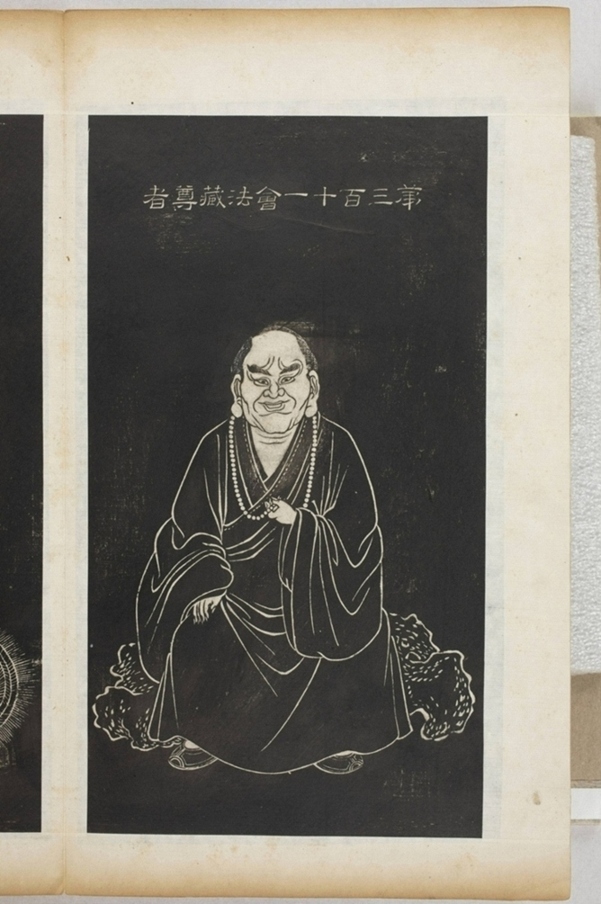 第三百十一會法藏尊者